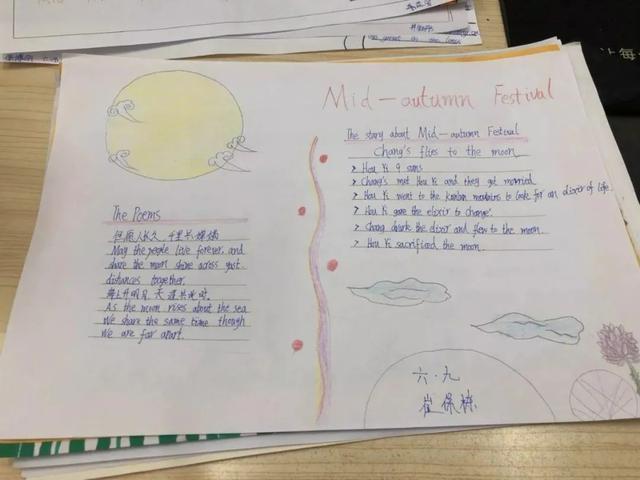 Mid-autumn Festival
The story about Mid-autumn Festival
Chang's flies to the moon
> Hou Yi 9 suns
> Chang's met Hou Yi and they get married.
> Hou Yi went to the kunlun mountains to look for an elixir of life.
> Hou Yi gave the elixir to change.
> Chang drank the elixir and flew to the moon.
> Hou Yi sacrificed the moon.
The Poems
但愿人长久，千里共婵娟
May the people live forever, and
share the moon shine across
distances together.
海上升明月 天涯共此时
As the moon rises about the sea
We share the same time though
We are far apart.
六.九
崔保